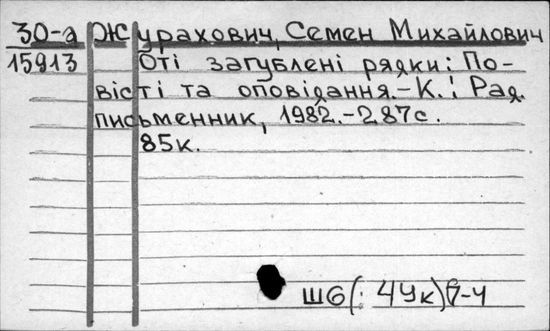 30-а Журахович, Семен Михайлович
15913 Оті загублені рядки: По-
вісті та оповідання.-К.: Рад.
письменник, 1982.-287с.
85к.
Ш6(: 4Ук)7-4